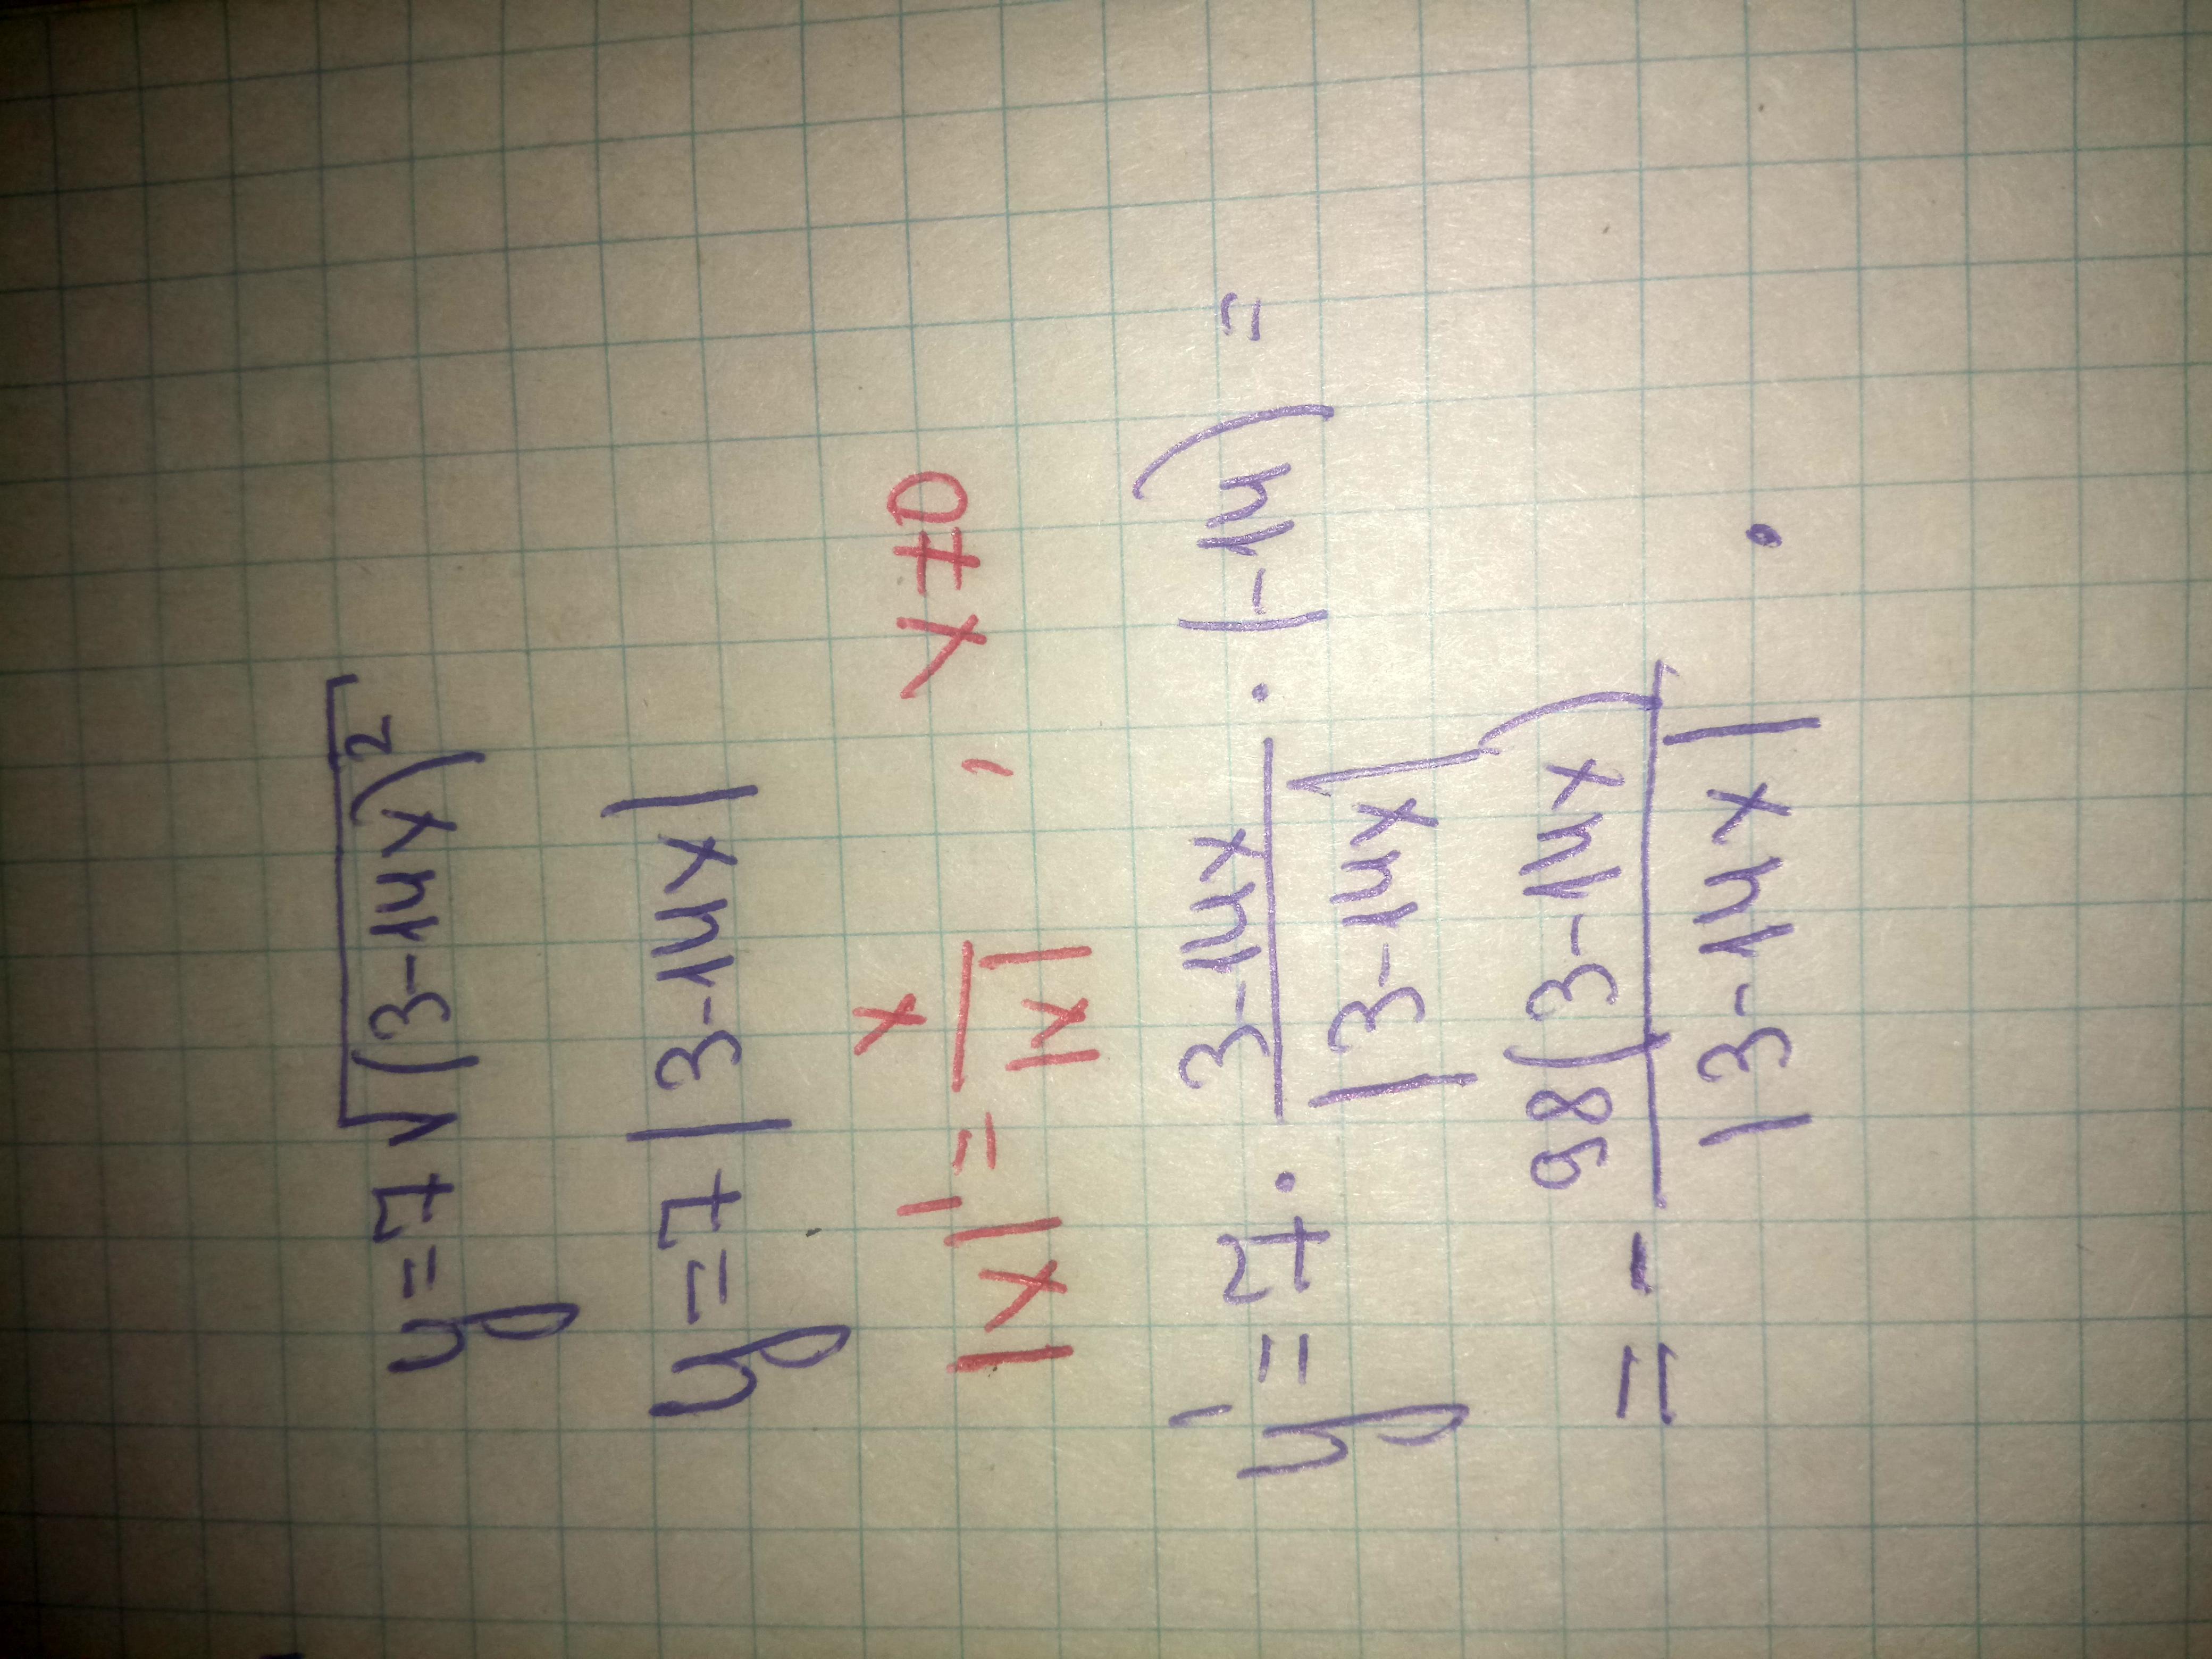 y = 7 √(3-14x)²
y = 7 |3-14x|
|x|' = x/|x| , x≠0
y' = 7 · (3-14x)/|3-14x| · (-14) =
= - 98(3-14x)/|3-14x| .